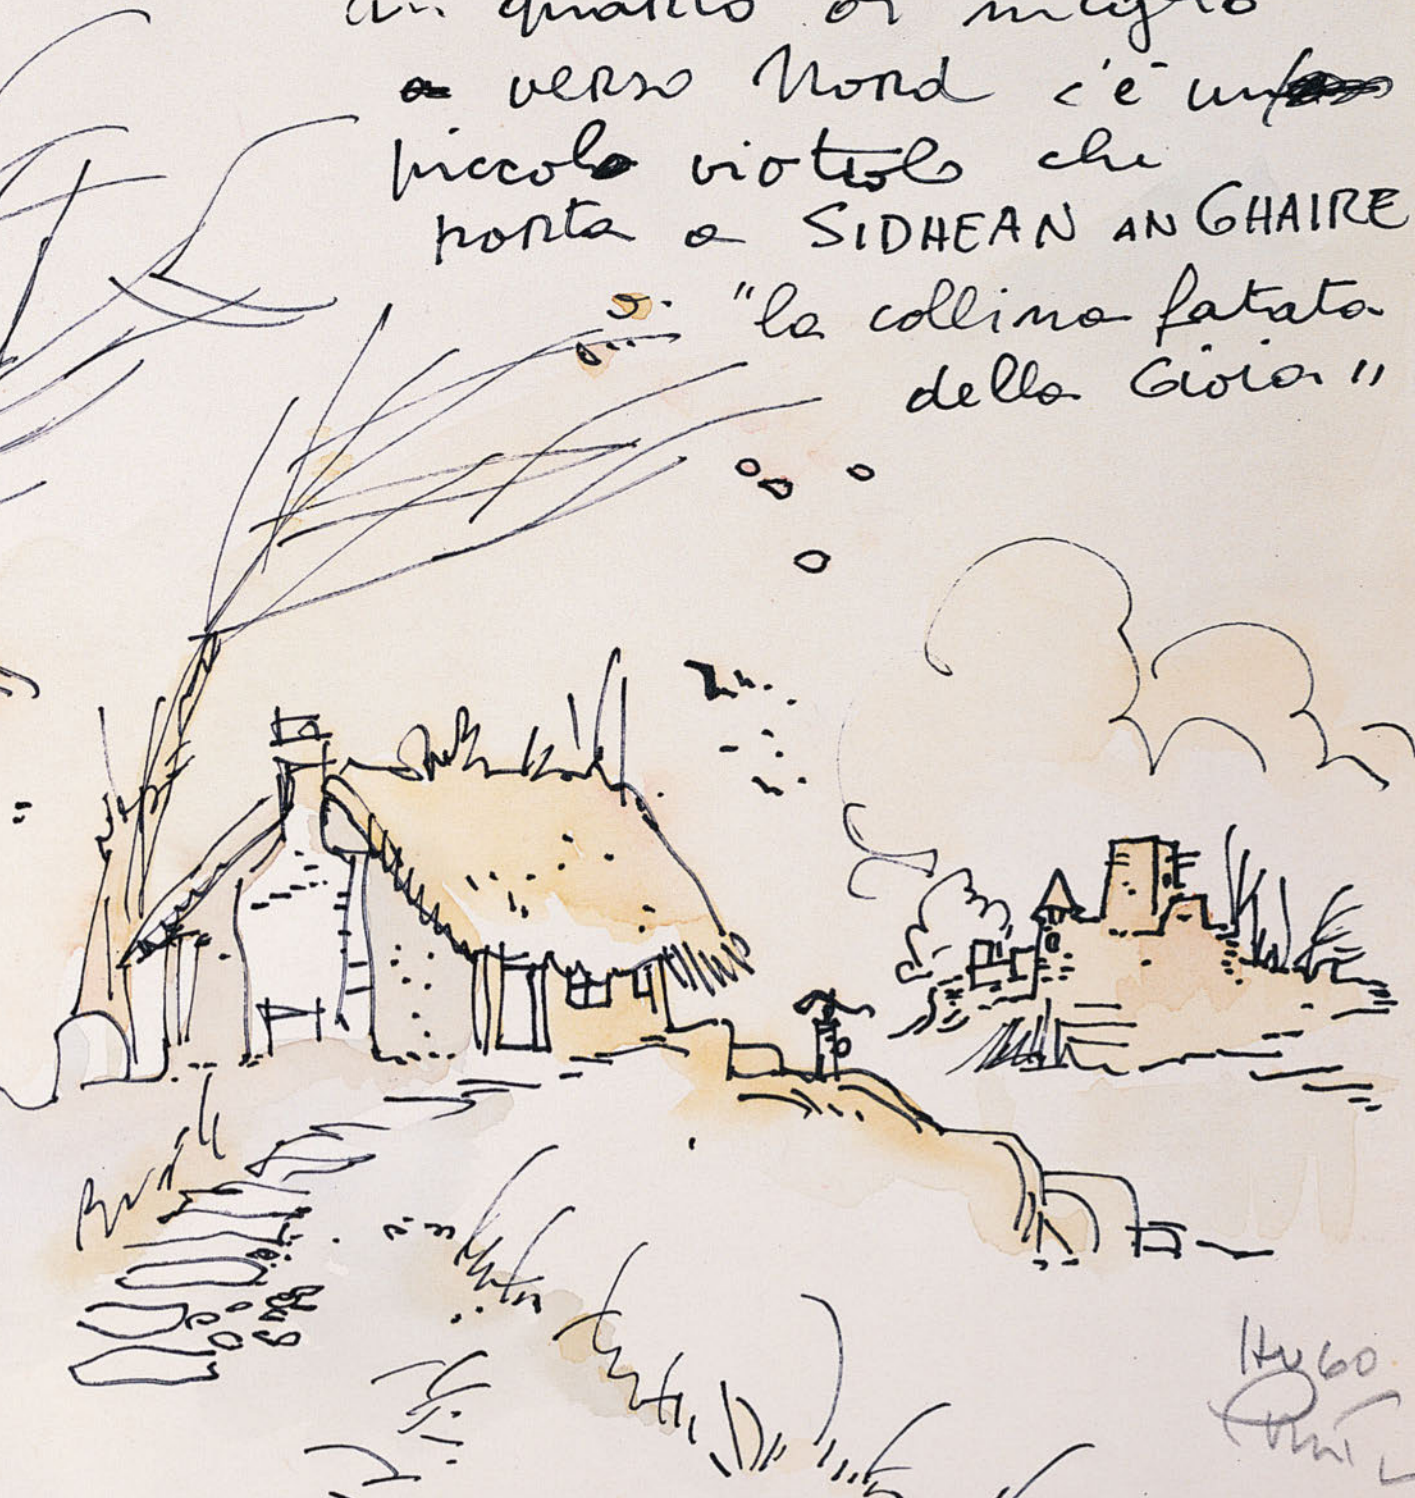 un quarto di miglio
verso Nord c'è un
piccolo viottolo che
porta a SIDHEAN AN GHAIRE
"la collina fatata
della Gioia"
HUGO
Pratt